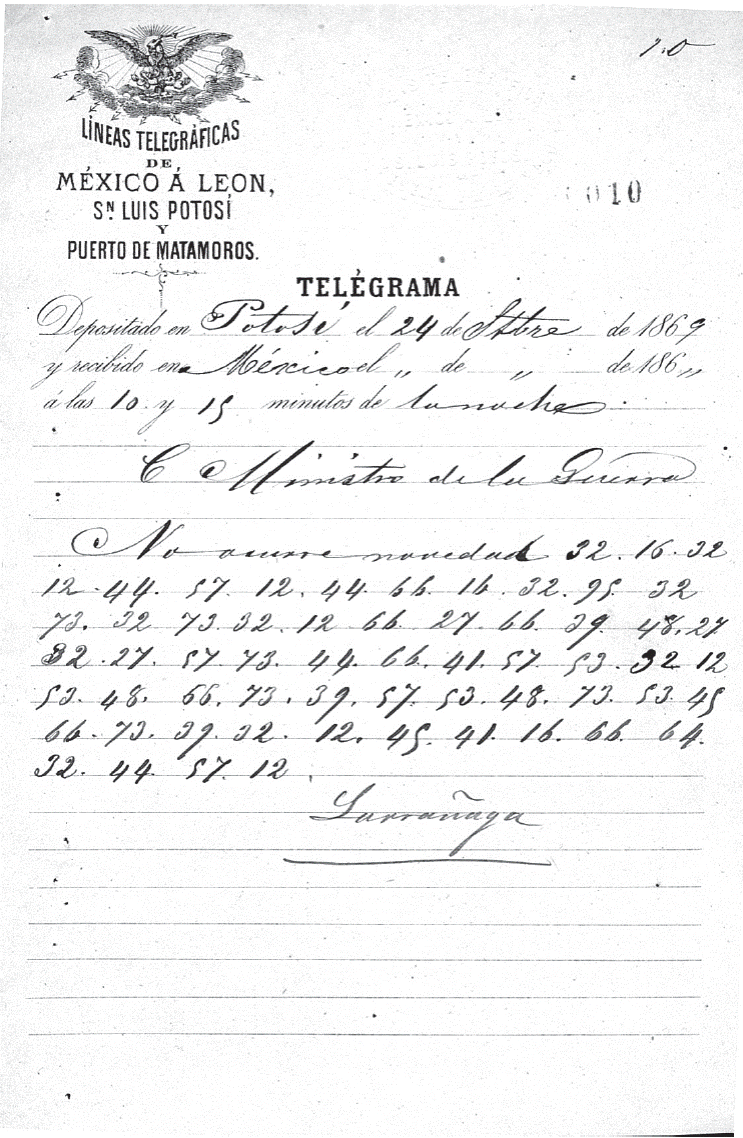 10
LÍNEAS TELEGRÁFICAS
DE
MÉXICO Á LEON,
Sⁿ LUIS POTOSÍ
Y
PUERTO DE MATAMOROS.
010
TELÉGRAMA
Depositado en Potosí el 24 de Stbre de 1869
y recibido en México el „ de „ de 186„
á las 10 y 15 minutos de la noche
C Ministro de la Guerra
No ocurre novedad 32. 16. 32
12. 44. 57. 12. 44. 66. 16. 32. 95. 32
73. 32 73. 32. 12 66. 27. 66. 39. 48. 27
32. 27. 57 73. 44. 66. 41. 57 53. 32 12
53. 48. 66. 73. 39. 57. 53. 48. 73. 53. 45
66. 73. 39. 32. 12. 45. 41. 16. 66. 64.
32. 44. 57. 12.
Larrañaga